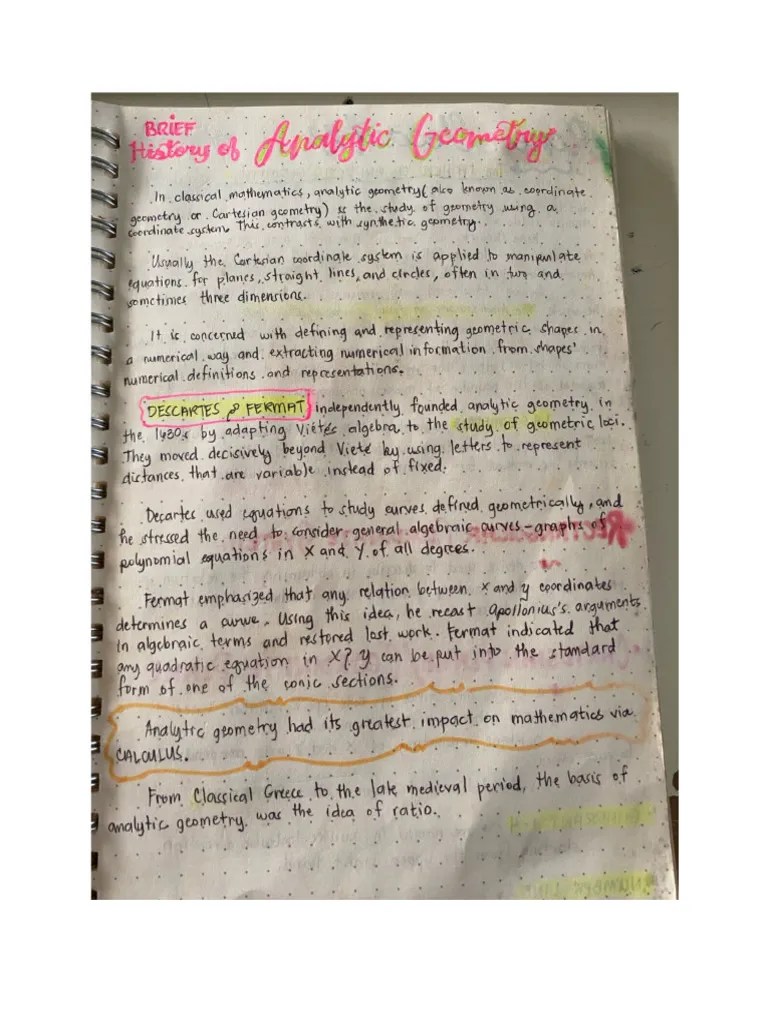 BRIEF
History of Analytic Geometry
In classical mathematics, analytic geometry (also known as coordinate
geometry or Cartesian geometry) is the study of geometry using a
coordinate system. This contrasts with synthetic geometry.
Usually the Cartesian coordinate system is applied to manipulate
equations for planes, straight lines, and circles, often in two and
sometimes three dimensions.
It is concerned with defining and representing geometric shapes in
a numerical way and extracting numerical information from shapes'
numerical definitions and representations.
DESCARTES & FERMAT independently founded analytic geometry in
the 1430s by adapting Viétés algebra to the study of geometric loci.
They moved decisively beyond Viete by using letters to represent
distances that are variable instead of fixed.
Decartes used equations to study curves defined geometrically, and
he stressed the need to consider general algebraic curves-graphs of
polynomial equations in X and Y of all degrees.
Fermat emphasized that any relation between x and y coordinates
determines a curve. Using this idea, he recast Apollonius's arguments
in algebraic terms and restored lost work. Fermat indicated that
any quadratic equation in X & Y can be put into the standard
form of one of the conic sections.
Analytic geometry had its greatest impact on mathematics via
CALCULUS.
From Classical Greece to the late medieval period, the basis of
analytic geometry was the idea of ratio.